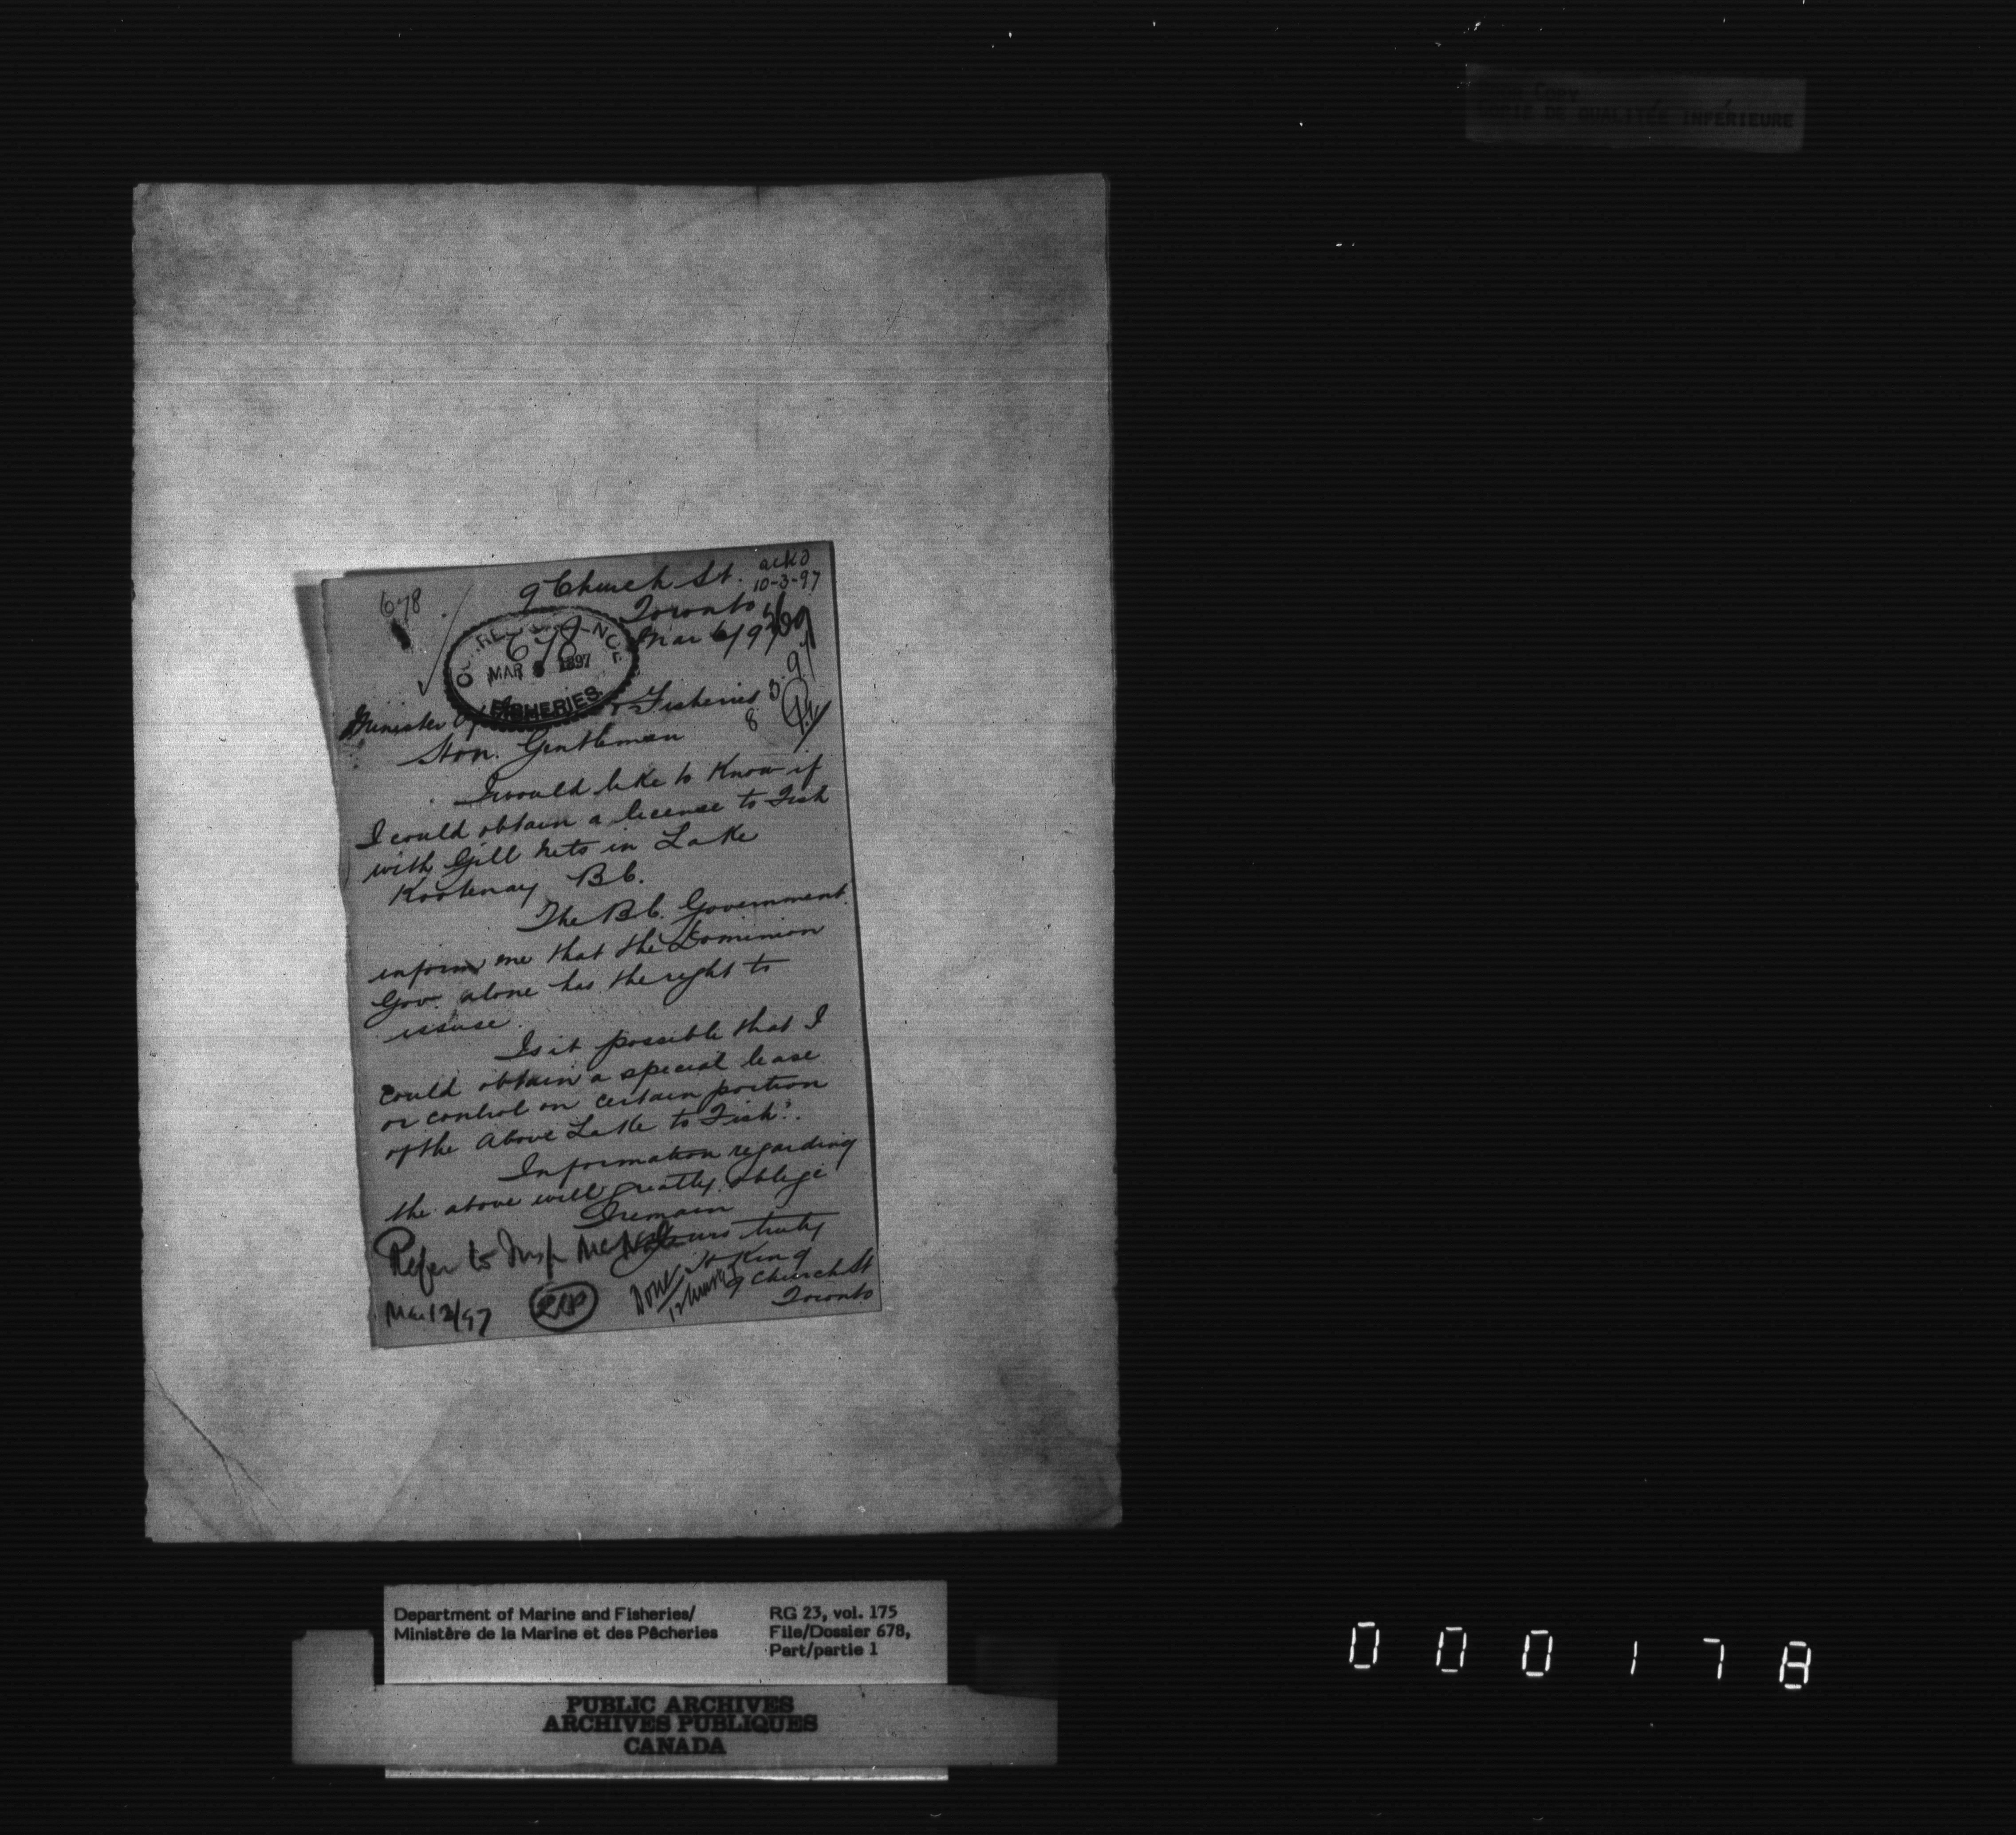 POOR COPY
COPIE DE QUALITÉE INFÉRIEURE
678
9 Church St.
ackd
10-3-97
Toronto
Mar 6/97
678
MAR 8 1897
FISHERIES
Minister of Fisheries
3.97
8
Hon. Gentleman
I would like to know if
I could obtain a license to Fish
with Gill Nets in Lake
Kootenay B.C.
The B.C. Government
inform me that the Dominion
Gov. alone has the right to
issuse.
Is it possible that I
could obtain a special lease
or control on certain portion
of the Above Lake to Fish?.
Information regarding
the above will greatly oblige
I remain
Yours truly
H King
9 Church St
Toronto
Refer to Insp McNab
Mar 12/97
Done
Department of Marine and Fisheries/
Ministère de la Marine et des Pêcheries
RG 23, vol. 175
File/Dossier 678,
Part/partie 1
PUBLIC ARCHIVES
ARCHIVES PUBLIQUES
CANADA
000178